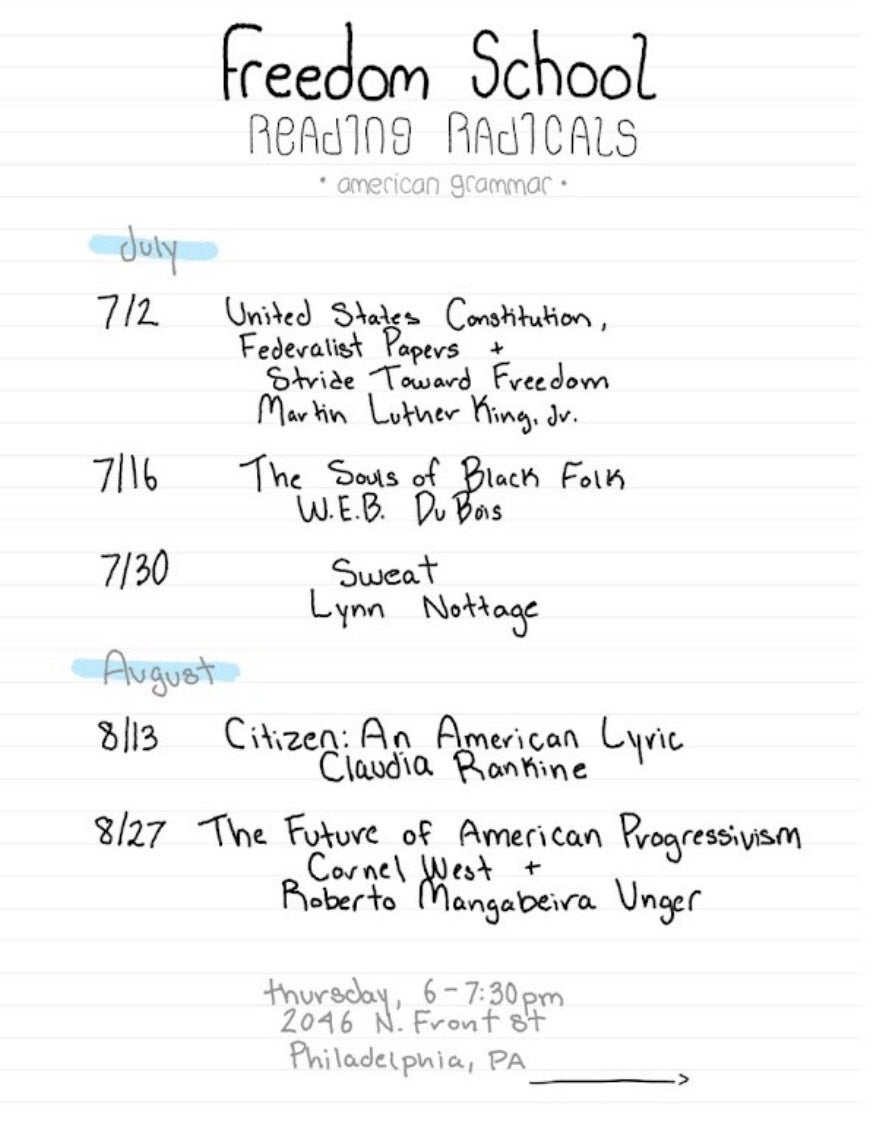 Freedom School
READING RADICALS
• american grammar •
July
7/2 United States Constitution,
Federalist Papers +
Stride Toward Freedom
Martin Luther King, Jr.
7/16 The Souls of Black Folk
W.E.B. Du Bois
7/30 Sweat
Lynn Nottage
August
8/13 Citizen: An American Lyric
Claudia Rankine
8/27 The Future of American Progressivism
Cornel West +
Roberto Mangabeira Unger
thursday, 6-7:30pm
2046 N. Front St
Philadelphia, PA